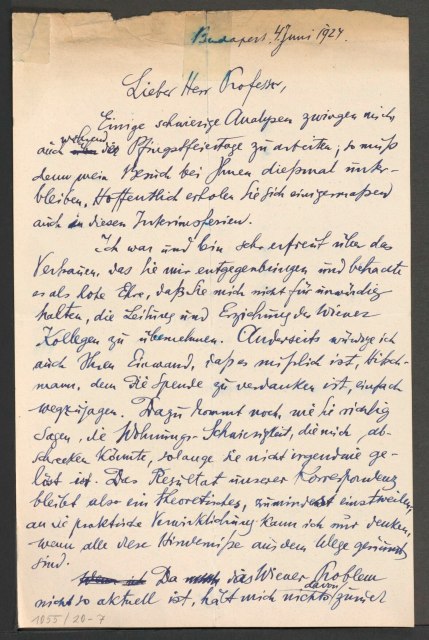 Budapest, 4. Juni 1924.
Lieber Herr Professor,
Einige schwierige Analysen zwingen mich
auch während die Pfingstfeiertage zu arbeiten, so muß
denn mein Besuch bei Ihnen diesmal unter-
bleiben, Hoffentlich erholen Sie sich einigermassen
auch in diesen Interimsferien.
Ich war und bin sehr erfreut über das
Vertrauen, das Sie mir entgegenbringen und betrachte
es als hohe Ehre, daß Sie mich nicht für unwürdig
halten, die Leitung und Erziehung der Wiener
Kollegen zu übernehmen. Anderseits würdige ich
auch Ihren Einwand, daß es mißlich ist, Hitsch-
mann, dem die Spende zu verdanken ist, einfach
wegzujagen. Dazu kommt noch, wie Sie richtig
sagen, die Wohnungs-Schwierigkeit, die mich ab-
schrecken könnte, solange sie nicht irgendwie ge-
löst ist. Das Resultat unserer Korrespondenz
bleibt also ein theoretisches, zumindest einstweilen,
an die praktische Verwirklichung kann ich nur denken,
wenn alle diese Hindernisse aus dem Wege geräumt
sind.
Da das Wiener Problem
nicht so aktuell ist, hält mich nichts davon zurück
1055/20-7